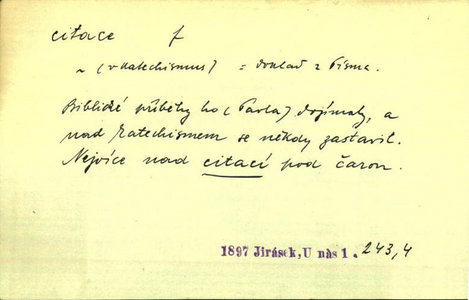 citace f
~ (v katechismus) = doklad z Písma.
Biblické příběhy ho (Pavla) dojímaly, a
nad katechismem se někdy zastavil.
Nejvíce nad citací pod čarou.
1897 Jirásek, U nás 1. 243,4